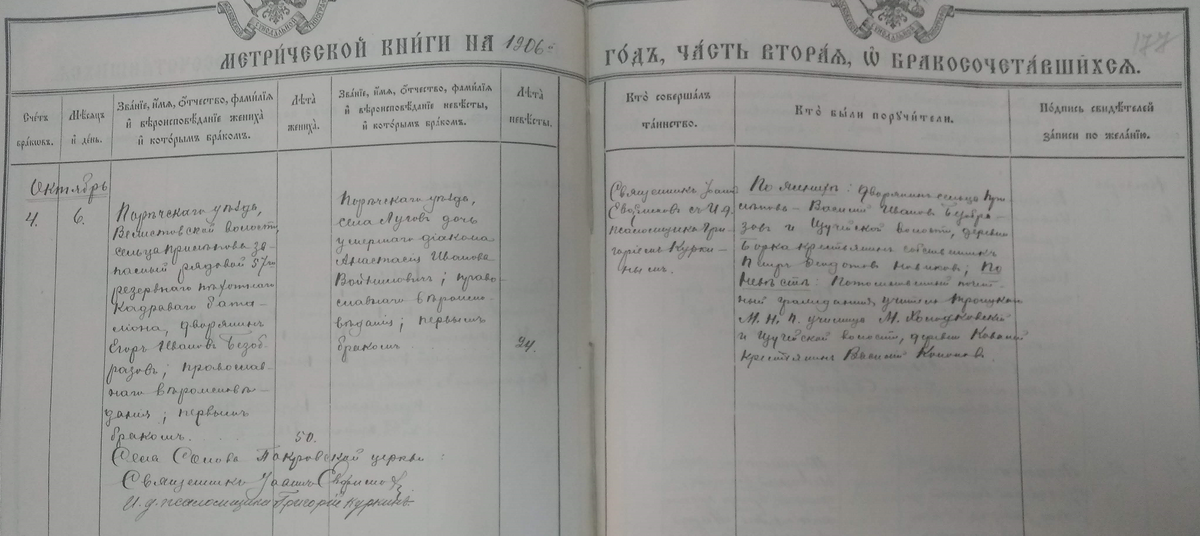 МЕТРИ́ЧЕСКОЙ КНИ́ГИ НА 1906=
ГО́ДЪ, ЧА́СТЬ ВТОРА́Я, Ѡ҆ БРАКОСОЧЕТА́ВШИХСЯ.
177
Сче́тъ бра́ковъ.
Мѣ́сяцъ и҆ де́нь.
Зва́нїе, и҆́мя, ѻ҆́тчество, фами́лїя и҆ вѣроисповѣ́данїе жениха̀ и҆ кото́рымъ бра́комъ.
Лѣ́та жениха̀.
Зва́нїе, и҆́мя, ѻ҆́тчество, фами́лїя и҆ вѣроисповѣ́данїе невѣ́сты, и҆ кото́рымъ бра́комъ.
Лѣ́та невѣ́сты.
Кто̀ соверша́лъ та́инство.
Кто̀ бы́ли поручи́тели.
По́дпись свидѣ́телей за́писи по жела́нїю.
Октябрь
4.
6.
Порѣчскаго уѣзда,
волости,
сельца
пасный рядовой 57го
резервнаго пѣхотнаго
Кадраваго бата-
лiона, дворянинъ
Егоръ Ивановъ Безоб-
разовъ; православ-
наго вѣроисповѣ-
данiя; первымъ
бракомъ.
50.
Порѣчскаго уѣзда,
села Лугова дочь
умершаго дiакона
Анастасiя Иванова
Войнилович; право-
славнаго вѣроиспо-
вѣданiя; первымъ
бракомъ
24.
Священникъ Iоаннъ
съ И. д.
псаломщика Гри-
горiемъ Курки-
нымъ.
По жениху: дворянинъ сельца
Василiй Ивановъ Безобра-
зовъ и Щучейской волости, деревни
Борка крестьянинъ собственникъ
Петръ Ѳедотовъ Новиковъ; По
Невѣстѣ: Потомственный почет-
ный гражданинъ, учитель Троицкаго
М. Н. П. училища М. Холодковскiй
и Щучейской волости, деревни
крестьянинъ Василiй Кононов.
Села Сопова Покровской церкви:
Священникъ Iоаннъ
И. д. псаломщика Григорiй Куркинъ.